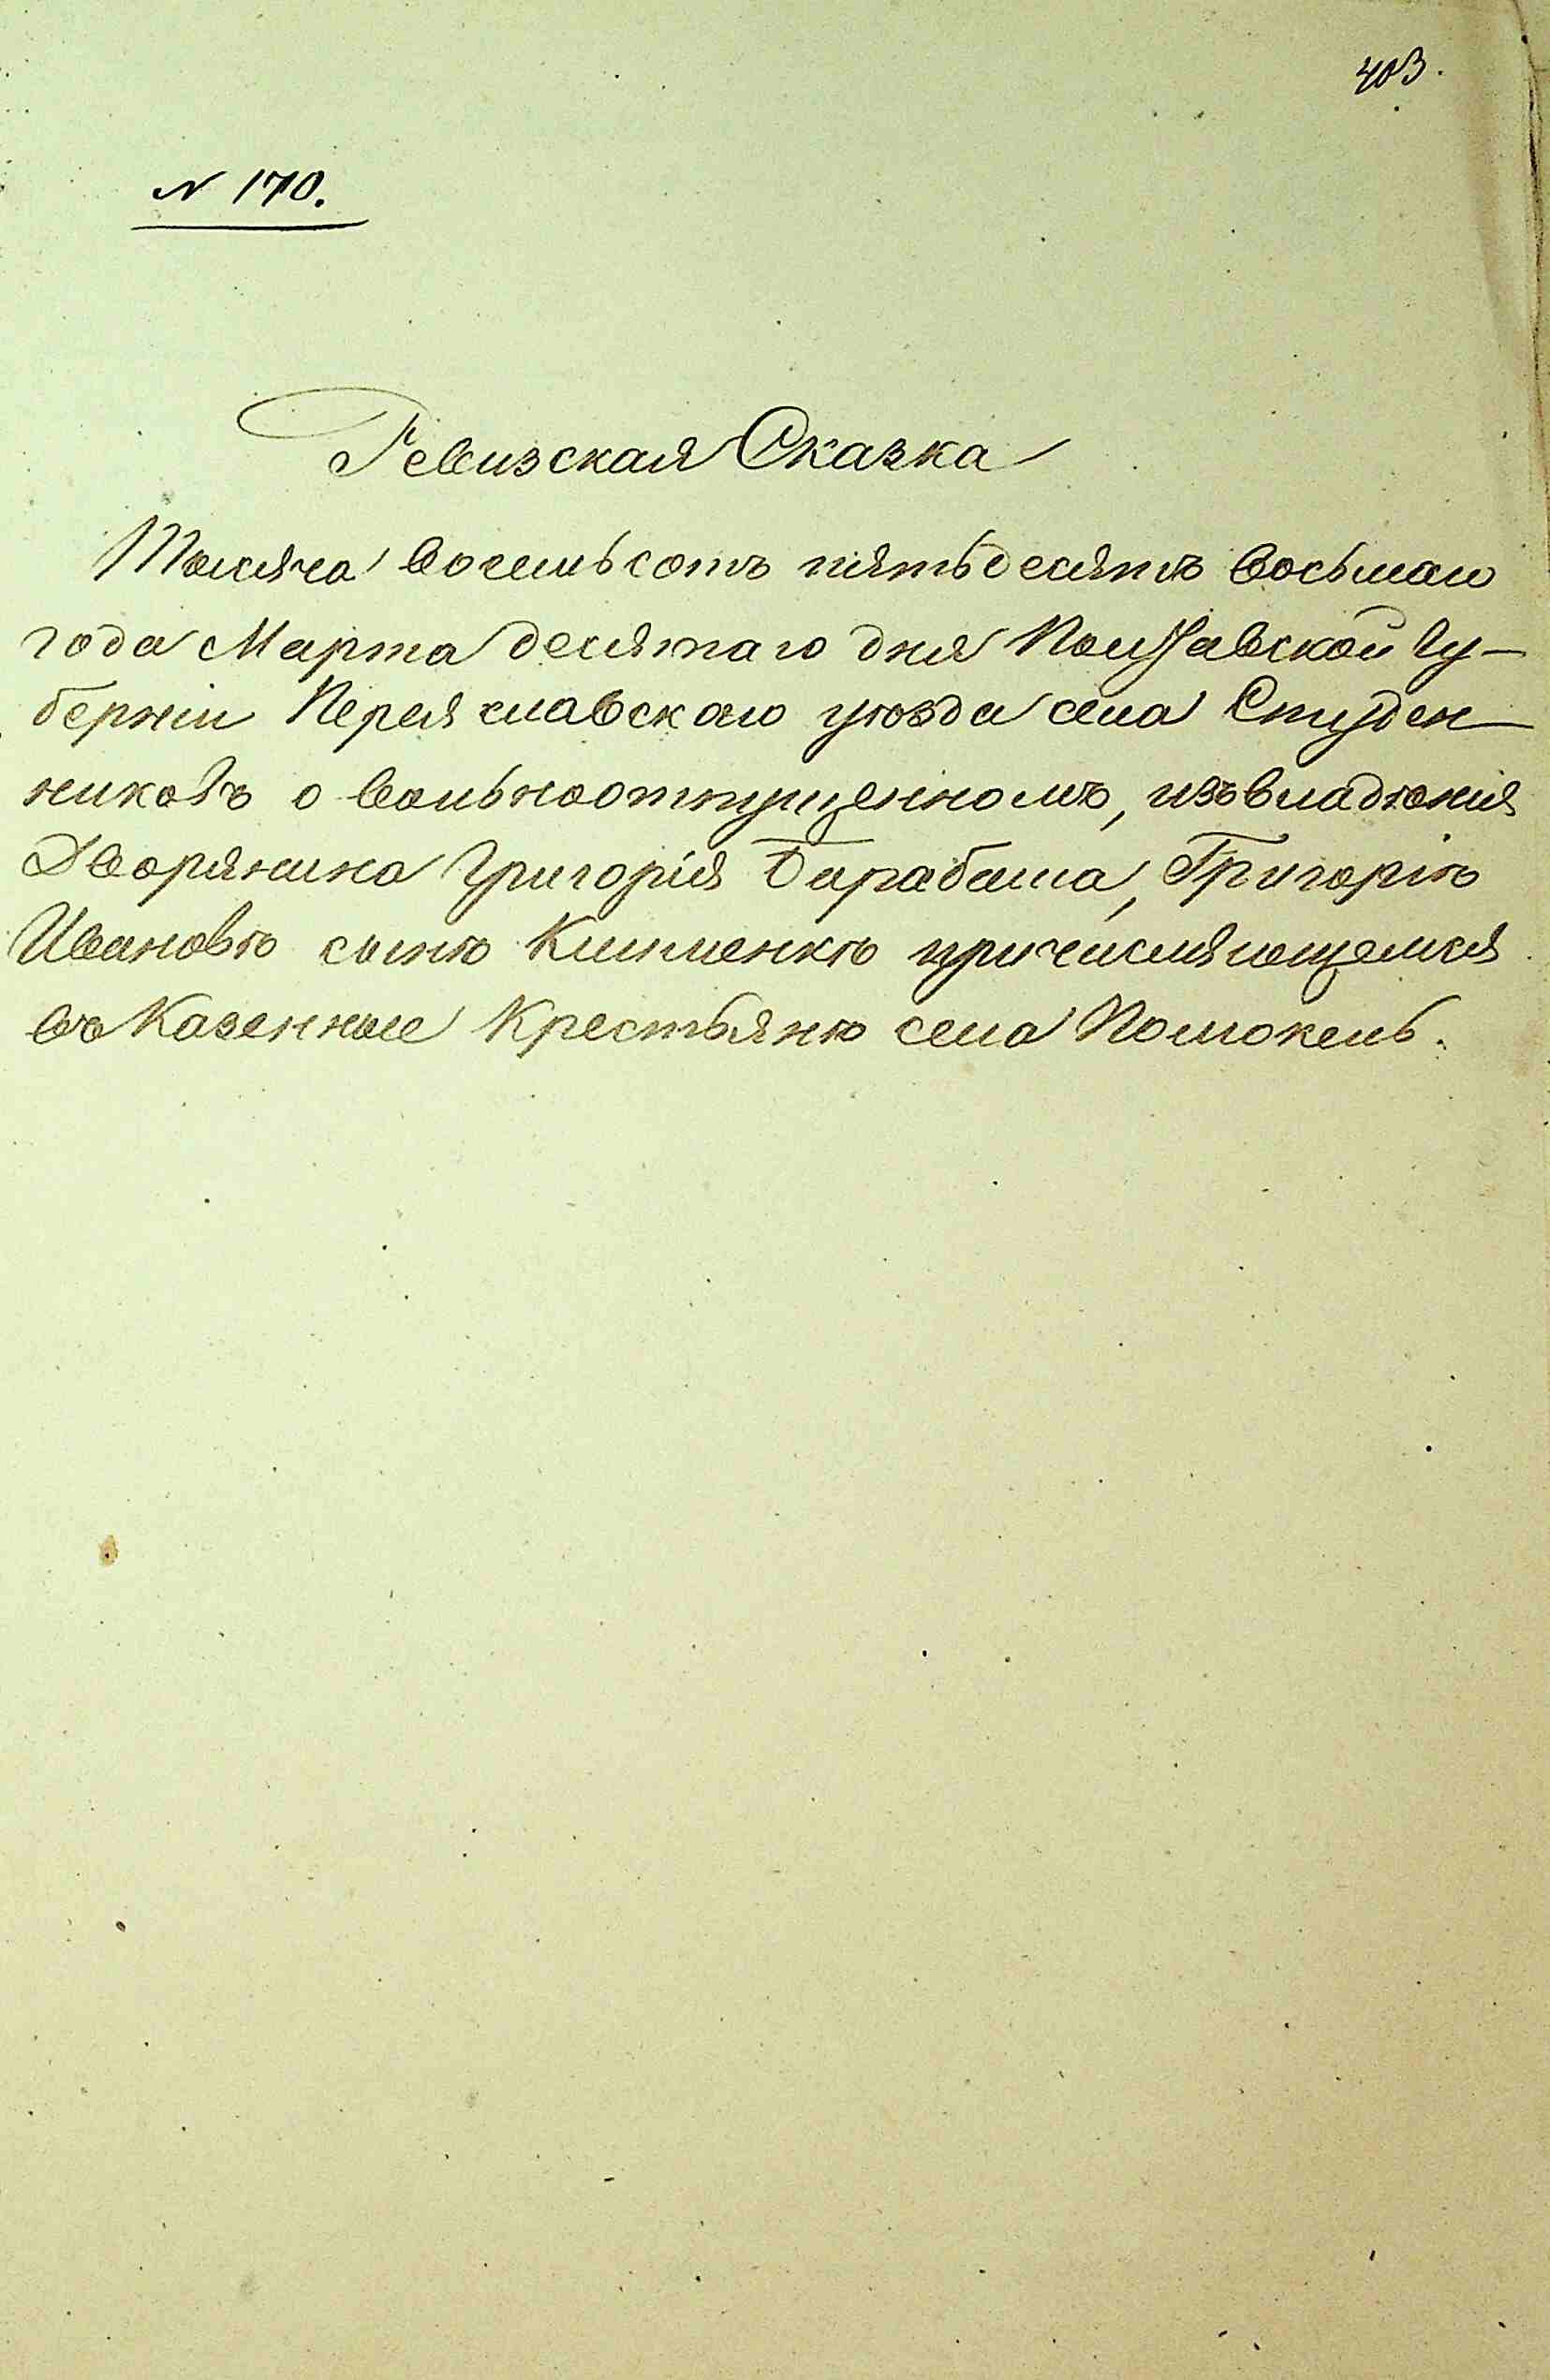 403.
N 170.
Ревизская Сказка
Тысяча восемьсотъ пятьдесятъ восьмаго
года Марта десятаго дня Полтавской Гу-
берніи Переяславскаго уѣзда села Студен-
никовъ о вольноотпущенномъ, изъ владѣнія
Дворянина Григорія Барабаша, Григоріѣ
Ивановѣ сынѣ Клименкѣ причисляющемся
въ Казенные Крестьянѣ села Помокель.